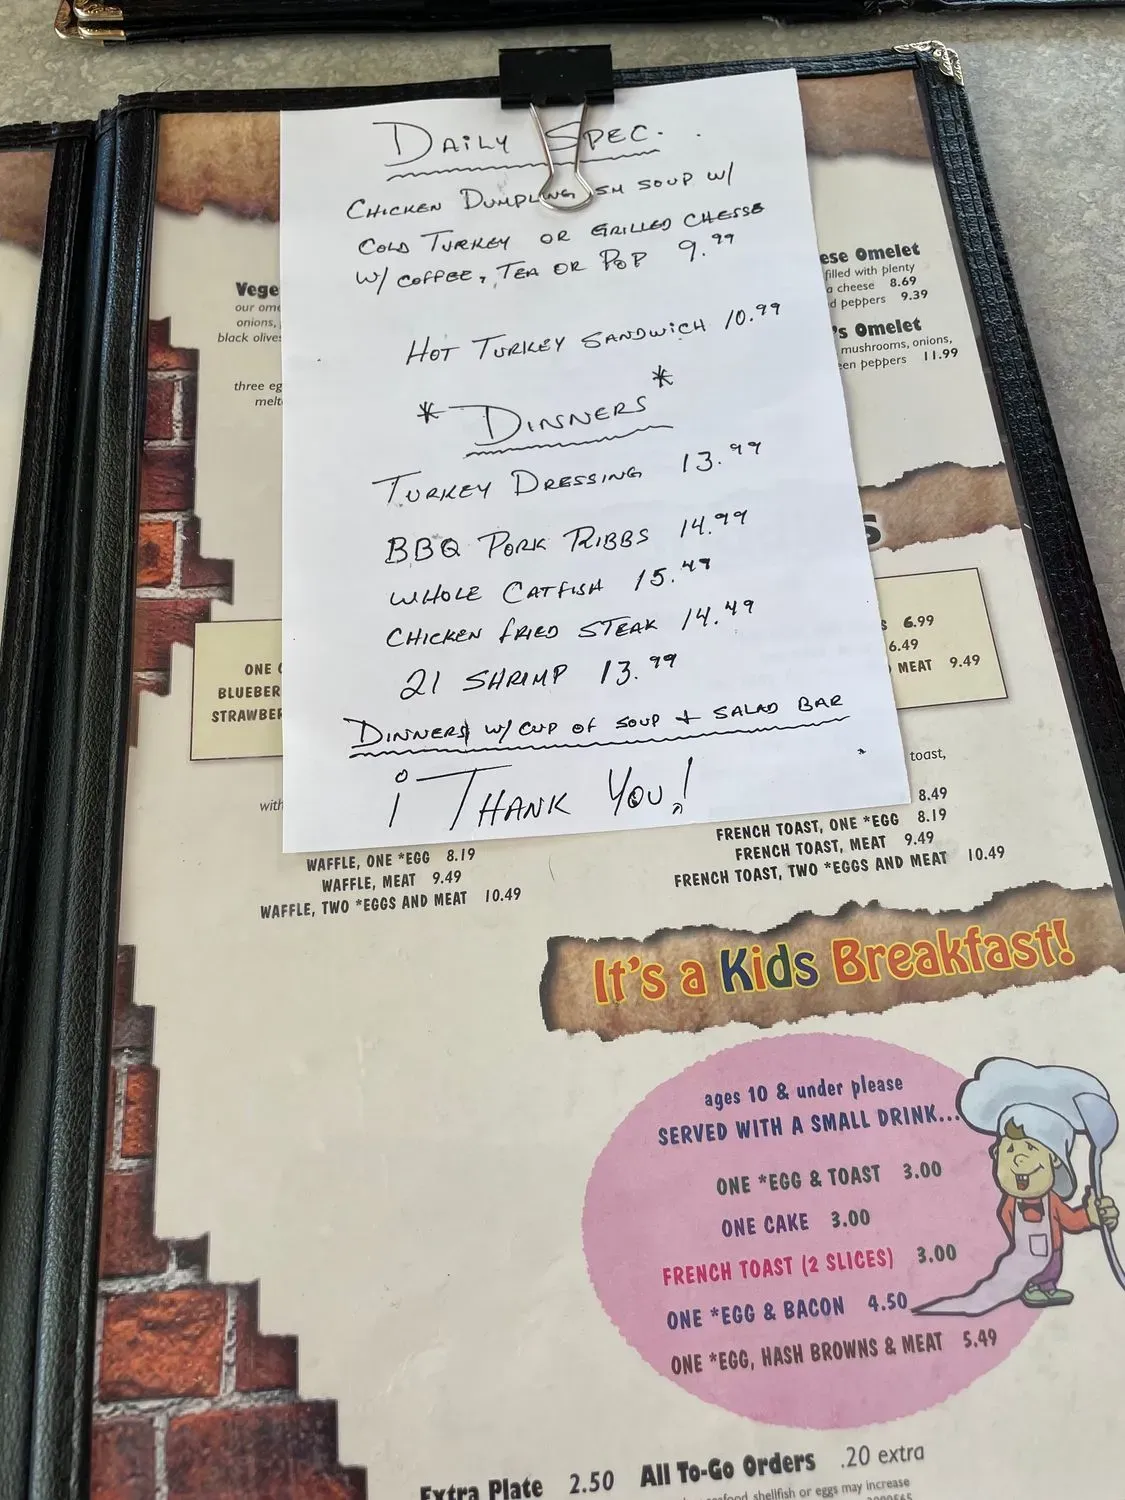 DAILY SPEC.
CHICKEN DUMPLING SM SOUP W/
COLD TURKEY OR GRILLED CHESSE
W/ COFFEE, TEA OR POP 9.99
HOT TURKEY SANDWICH 10.99
* DINNERS *
TURKEY DRESSING 13.99
BBQ PORK RIBBS 14.99
WHOLE CATFISH 15.49
CHICKEN FRIED STEAK 14.49
21 SHRIMP 13.99
DINNERS W/ CUP OF SOUP + SALAD BAR
¡ THANK YOU!
Vege
our ome
onions,
black olive
three eg
melt
ese Omelet
filled with plenty
a cheese 8.69
d peppers 9.39
's Omelet
mushrooms, onions,
en peppers 11.99
S
ONE
BLUEBER
STRAWBER
S 6.99
6.49
MEAT 9.49
with
toast,
8.49
WAFFLE, ONE *EGG 8.19
WAFFLE, MEAT 9.49
WAFFLE, TWO *EGGS AND MEAT 10.49
FRENCH TOAST, ONE *EGG 8.19
FRENCH TOAST, MEAT 9.49
FRENCH TOAST, TWO *EGGS AND MEAT 10.49
It's a Kids Breakfast!
ages 10 & under please
SERVED WITH A SMALL DRINK...
ONE *EGG & TOAST 3.00
ONE CAKE 3.00
FRENCH TOAST (2 SLICES) 3.00
ONE *EGG & BACON 4.50
ONE *EGG, HASH BROWNS & MEAT 5.49
Extra Plate 2.50 All To-Go Orders .20 extra
shellfish or eggs may increase